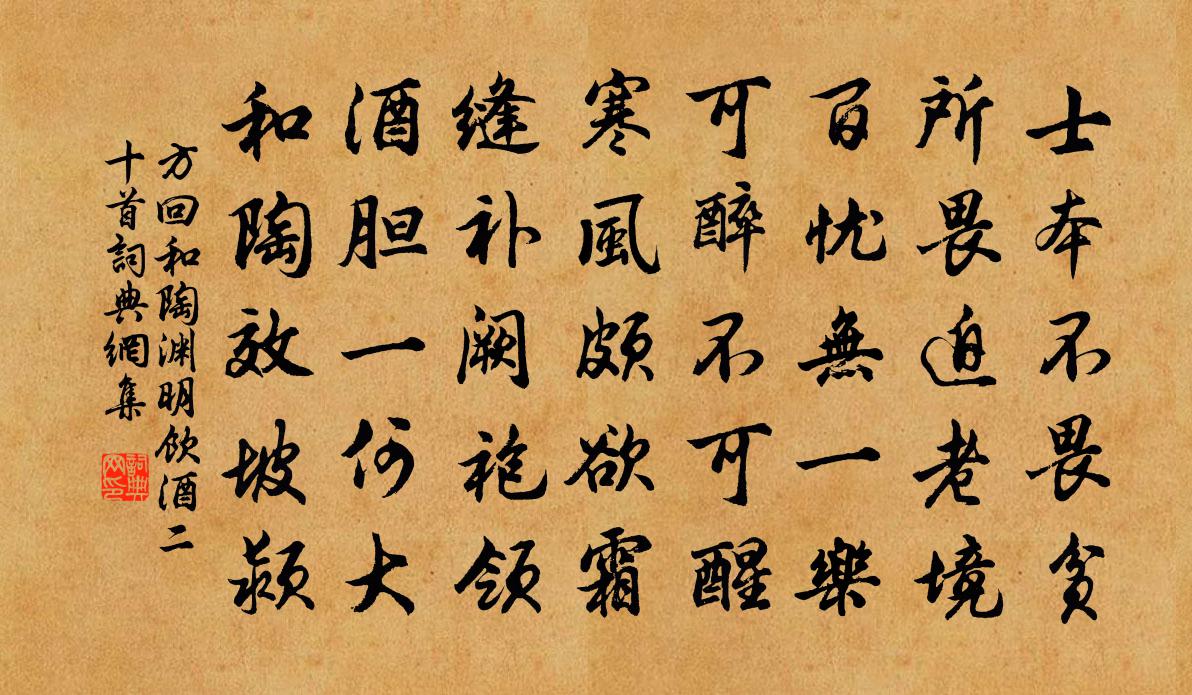 士本不畏贫
所畏迫老境
百忧無一樂
可醉不可醒
寒風頗欲霜
缝补阙袍领
酒胆一何大
和陶效坡颍
方回和陶渊明饮酒二
十首詞典網集